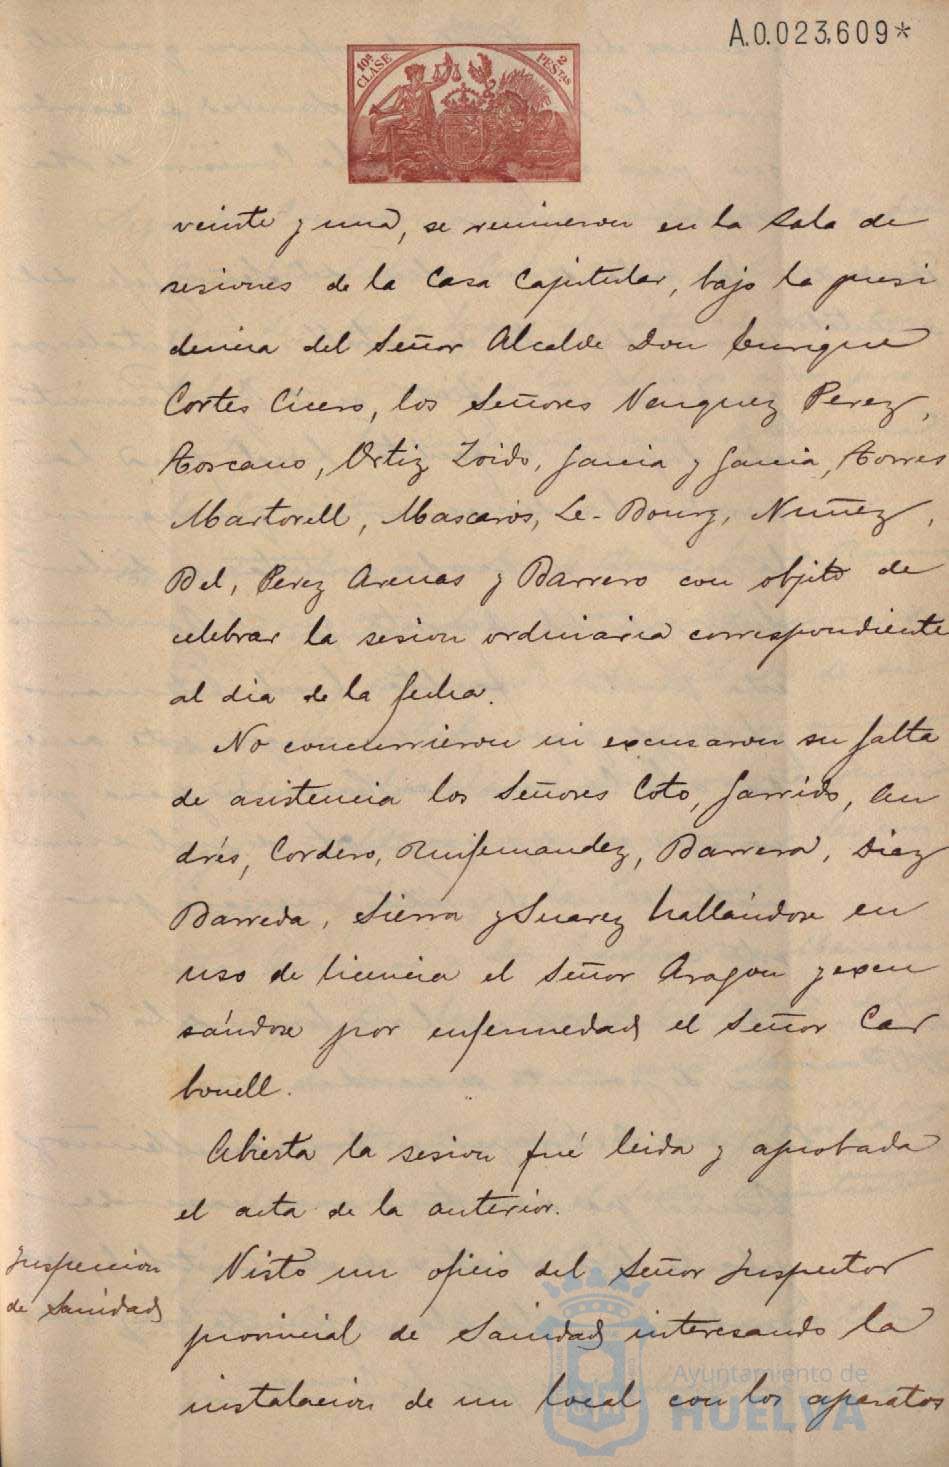 A.0.023,609*
10ª CLASE
2 PESTAS
veinte y una, se reunieron en la Sala de
sesiones de la Casa Capitular, bajo la presi
dencia del Señor Alcalde Don Enrique
Cortes Cícero, los Señores Vazquez Perez,
Toscano, Ortiz, Zoido, Garcia y Garcia, Torres
Martorell, Mascarós, Le-Bourg, Nuñez,
Bel, Perez Arenas y Barrero con objeto de
celebrar la sesion ordinaria correspondiente
al dia de la fecha.
No concurrieron ni excusaron su falta
de asistencia los Señores Coto, Garrido, An
drés, Cordero, Ruifernandez, Barrera, Diaz
Barreda, Sierra y Suarez hallándose en
uso de licencia el Señor Aragon y excu
sándose por enfermedad el Señor Car
bonell.
Abierta la sesion fué leida y aprobada
el acta de la anterior.
Inspeccion
de Sanidad
Visto un oficio del Señor Inspector
provincial de Sanidad interesando la
instalacion de un local con los aparatos
Ayuntamiento de
HUELVA